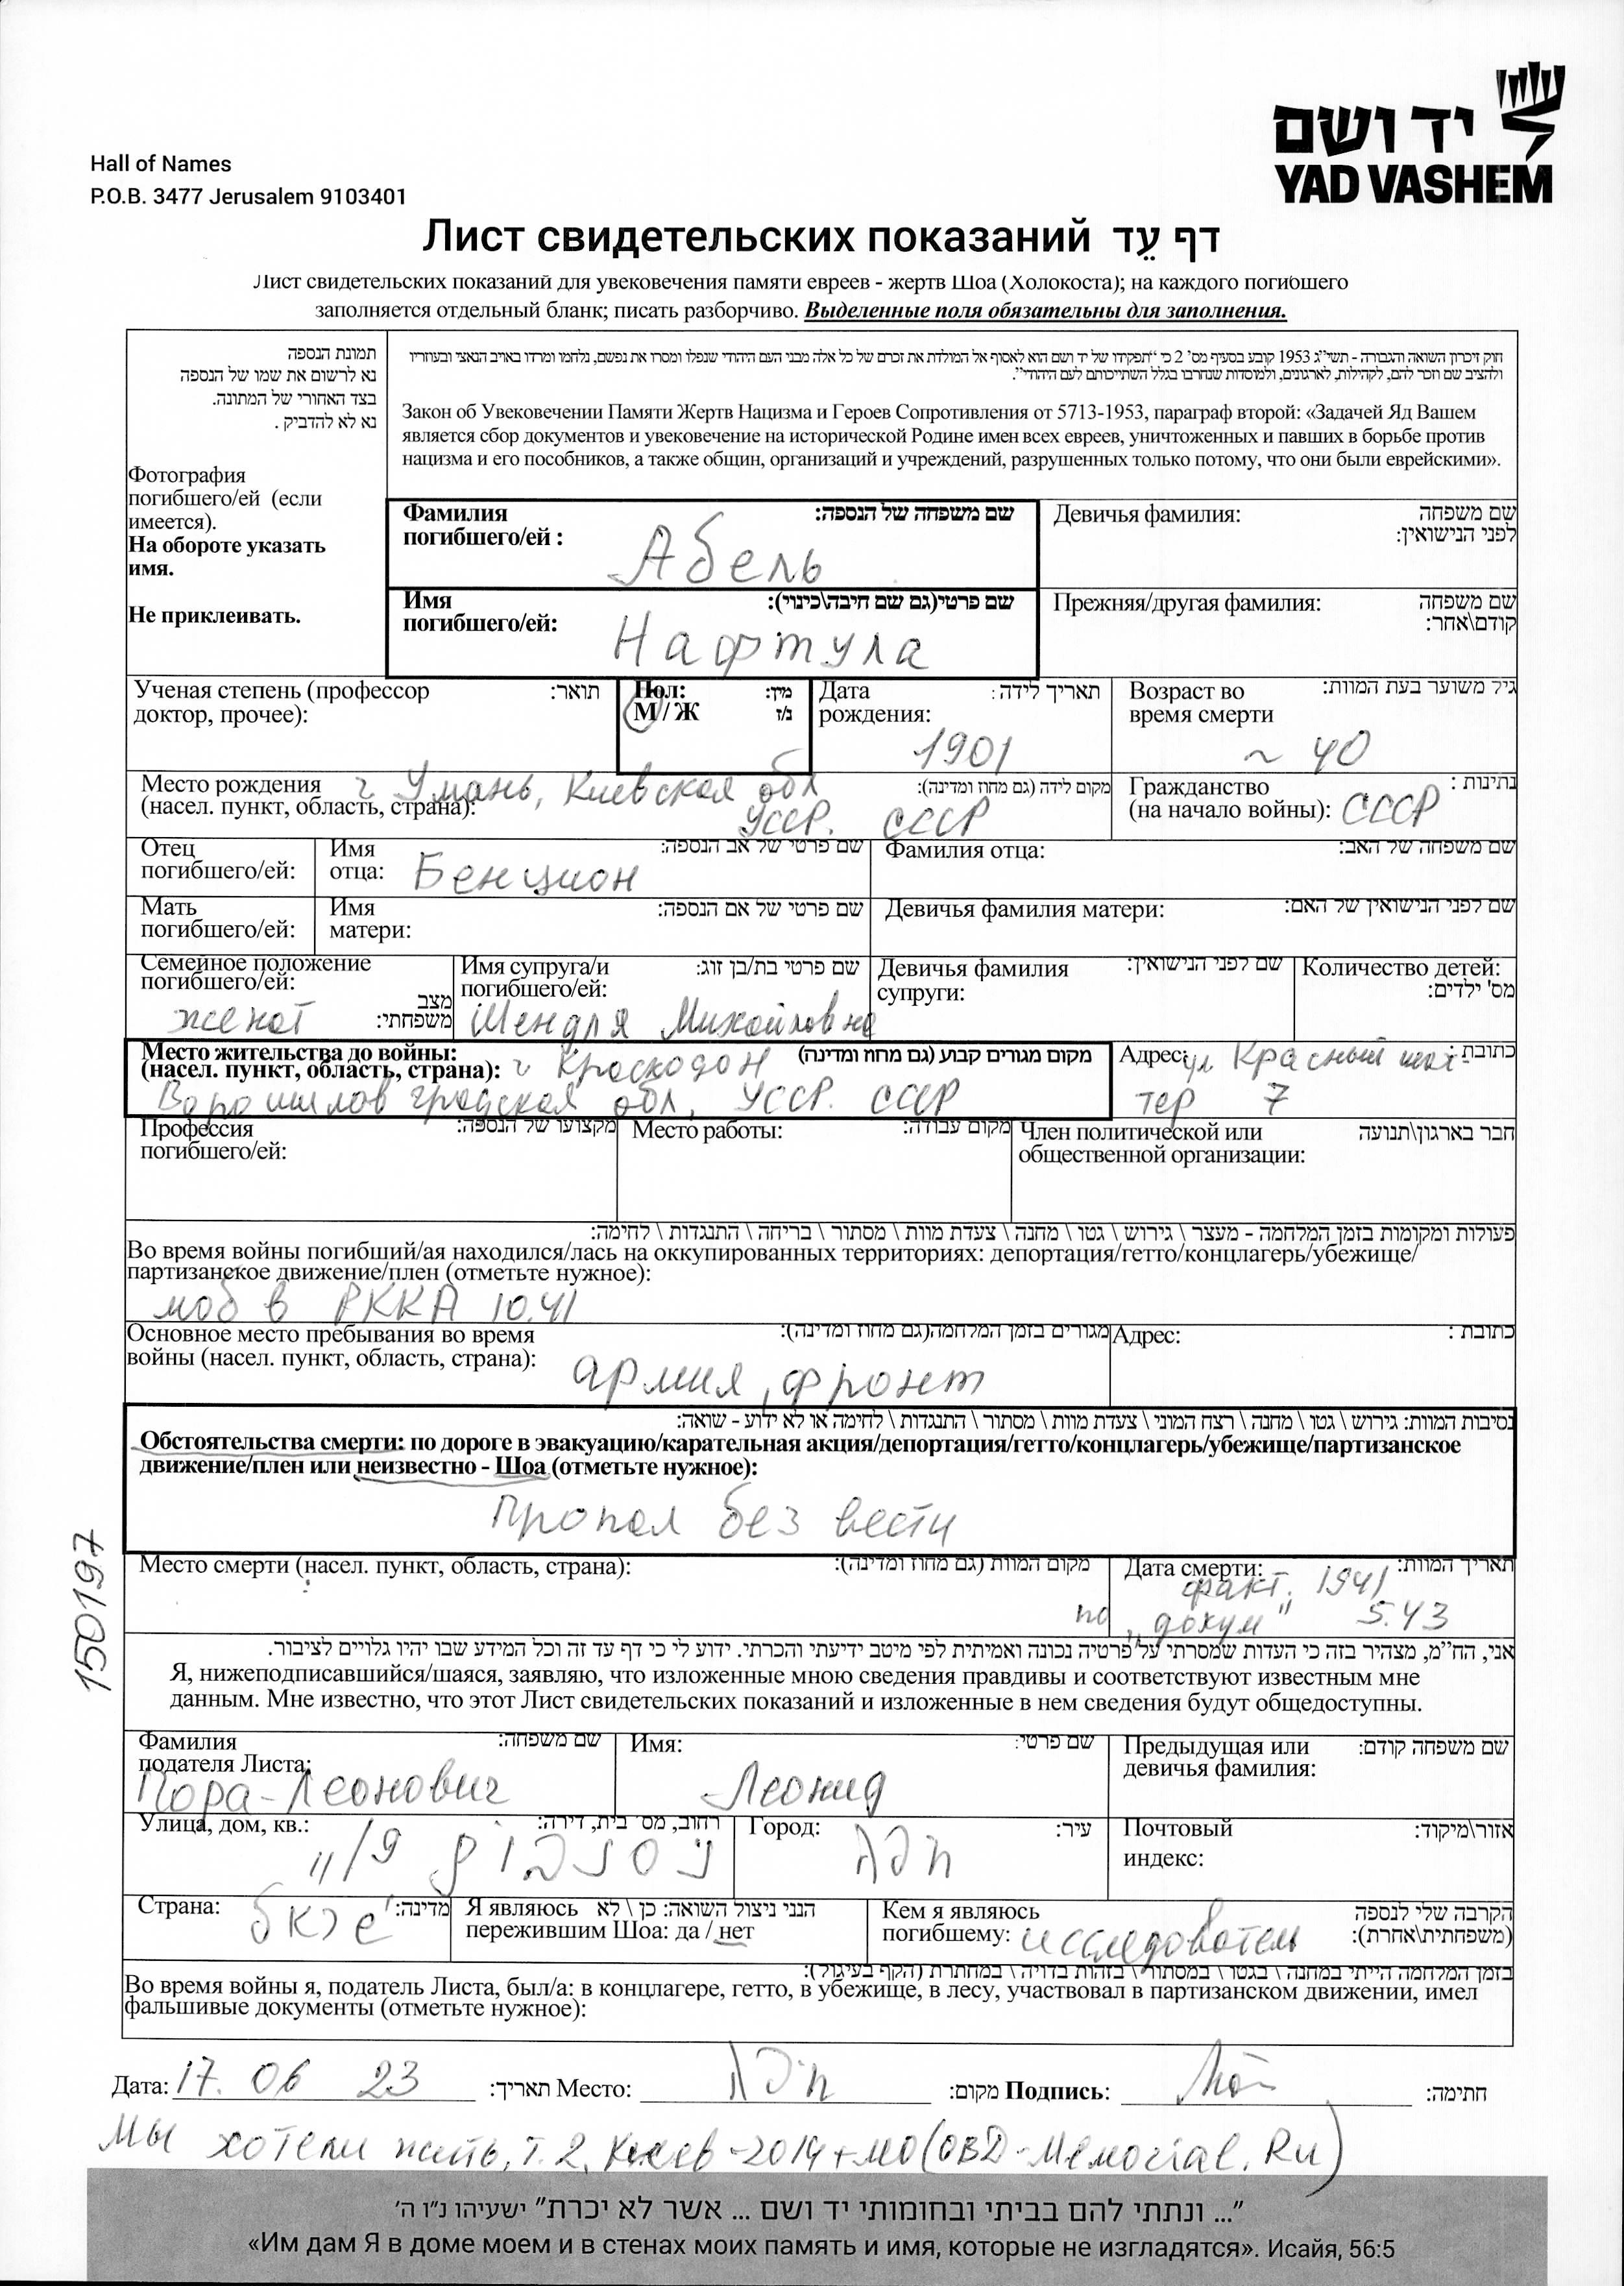 יד ושם
YAD VASHEM
Hall of Names
P.O.B. 3477 Jerusalem 9103401
Лист свидетельских показаний דף עֵד
Лист свидетельских показаний для увековечения памяти евреев - жертв Шоа (Холокоста); на каждого погибшего
заполняется отдельный бланк; писать разборчиво. Выделенные поля обязательны для заполнения.
תמונת הנספה
נא לרשום את שמו של הנספה
בצד האחורי של המתונה.
נא לא להדביק .
Фотография
погибшего/ей (если
имеется).
На обороте указать
имя.
Не приклеивать.
חוק זיכרון השואה והגבורה - תשי"ג 1953 קובע בסעיף מס' 2 כי "תפקידו של יד ושם הוא לאסוף אל המולדת את זכרם של כל אלה מבני העם היהודי שנפלו ומסרו את נפשם, נלחמו ומרדו באויב הנאצי ובעוזריו
ולהציב שם וזכר להם, לקהילות, לארגונים, ולמוסדות שנחרבו בגלל השתייכותם לעם היהודי".
Закон об Увековечении Памяти Жертв Нацизма и Героев Сопротивления от 5713-1953, параграф второй: «Задачей Яд Вашем
является сбор документов и увековечение на исторической Родине имен всех евреев, уничтоженных и павших в борьбе против
нацизма и его пособников, а также общин, организаций и учреждений, разрушенных только потому, что они были еврейскими».
Фамилия שם משפחה של הנספה:
погибшего/ей :
Абель
Девичья фамилия: שם משפחה
לפני הנישואין:
Имя שם פרטי(גם שם חיבה\כינוי):
погибшего/ей:
Нафтула
Прежняя/другая фамилия: שם משפחה
קודם\אחר:
Ученая степень (профессор תואר:
доктор, прочее):
Пол: מין:
М / Ж נ/ז
Дата תאריך לידה :
рождения:
1901
Возраст во גיל משוער בעת המוות:
время смерти
~ 40
Место рождения г Умань, Киевская обл
(насел. пункт, область, страна): מקום לידה (גם מחוז ומדינה):
УССР. СССР
Гражданство נתינות :
(на начало войны): СССР
Отец
погибшего/ей:
Имя שם פרטי של אב הנספה:
отца: Бенцион
Фамилия отца: שם משפחה של האב:
Мать
погибшего/ей:
Имя שם פרטי של אם הנספה:
матери:
Девичья фамилия матери: שם לפני הנישואין של האם:
Семейное положение
погибшего/ей:
מצב
משפחתי:
женат
Имя супруга/и שם פרטי בת/בן זוג:
погибшего/ей:
Шендля Михайловна
Девичья фамилия שם לפני הנישואין:
супруги:
Количество детей:
מס' ילדים:
Место жительства до войны: מקום מגורים קבוע (גם מחוז ומדינה)
(насел. пункт, область, страна): г Краснодон
Ворошиловградская обл, УССР. СССР
Адрес: כתובת :
ул Красный шах-
тер 7
Профессия מקצועו של הנספה:
погибшего/ей:
Место работы: מקום עבודה:
Член политической или חבר בארגון\תנועה
общественной организации:
פעולות ומקומות בזמן המלחמה - מעצר \ גירוש \ גטו \ מחנה \ צעדת מוות \ מסתור \ בריחה \ התנגדות \ לחימה:
Во время войны погибший/ая находился/лась на оккупированных территориях: депортация/гетто/концлагерь/убежище/
партизанское движение/плен (отметьте нужное):
моб в РККА 10.41
Основное место пребывания во время מגורים בזמן המלחמה(גם מחוז ומדינה):
войны (насел. пункт, область, страна):
армия, фронт
Адрес: כתובת :
נסיבות המוות: גירוש \ גטו \ מחנה \ רצח המוני \ צעדת מוות \ מסתור \ התנגדות \ לחימה או לא ידוע - שואה:
Обстоятельства смерти: по дороге в эвакуацию/карательная акция/депортация/гетто/концлагерь/убежище/партизанское
движение/плен или неизвестно - Шоа (отметьте нужное):
Пропал без вести
150197
Место смерти (насел. пункт, область, страна): מקום המוות (גם מחוז ומדינה):
Дата смерти: תאריך המוות:
факт. 1941
по „докум" 5.43
אני, הח"מ, מצהיר בזה כי העדות שמסרתי על פרטיה נכונה ואמיתית לפי מיטב ידיעתי והכרתי. ידוע לי כי דף עד זה וכל המידע שבו יהיו גלויים לציבור.
Я, нижеподписавшийся/шаяся, заявляю, что изложенные мною сведения правдивы и соответствуют известным мне
данным. Мне известно, что этот Лист свидетельских показаний и изложенные в нем сведения будут общедоступны.
Фамилия שם משפחה:
подателя Листа:
Пора-Леонович
Имя: שם פרטי:
Леонид
Предыдущая или שם משפחה קודם:
девичья фамилия:
Улица, дом, кв.: רחוב, מס' בית, דירה:
11/9
Город: עיר:
חיפה
Почтовый אזור\מיקוד:
индекс:
Страна: מדינה:
Я являюсь הנני ניצול השואה: כן \ לא
пережившим Шоа: да / нет
Кем я являюсь הקרבה שלי לנספה
погибшему: (משפחתית\אחרת):
исследователь
בזמן המלחמה הייתי במחנה \ בגטו \ במסתור \ בזהות בדויה \ במחתרת (הקף בעיגול):
Во время войны я, податель Листа, был/а: в концлагере, гетто, в убежище, в лесу, участвовал в партизанском движении, имел
фальшивые документы (отметьте нужное):
Дата: 17. 06 23 תאריך: Место: חיפה מקום: Подпись: חתימה:
Мы хотели жить, т. 2, Киев-2014+МО(OBD-Memorial.Ru)
"... ונתתי להם בביתי ובחומותי יד ושם ... אשר לא יכרת" ישעיהו נ"ו ה'
«Им дам Я в доме моем и в стенах моих память и имя, которые не изгладятся». Исайя, 56:5